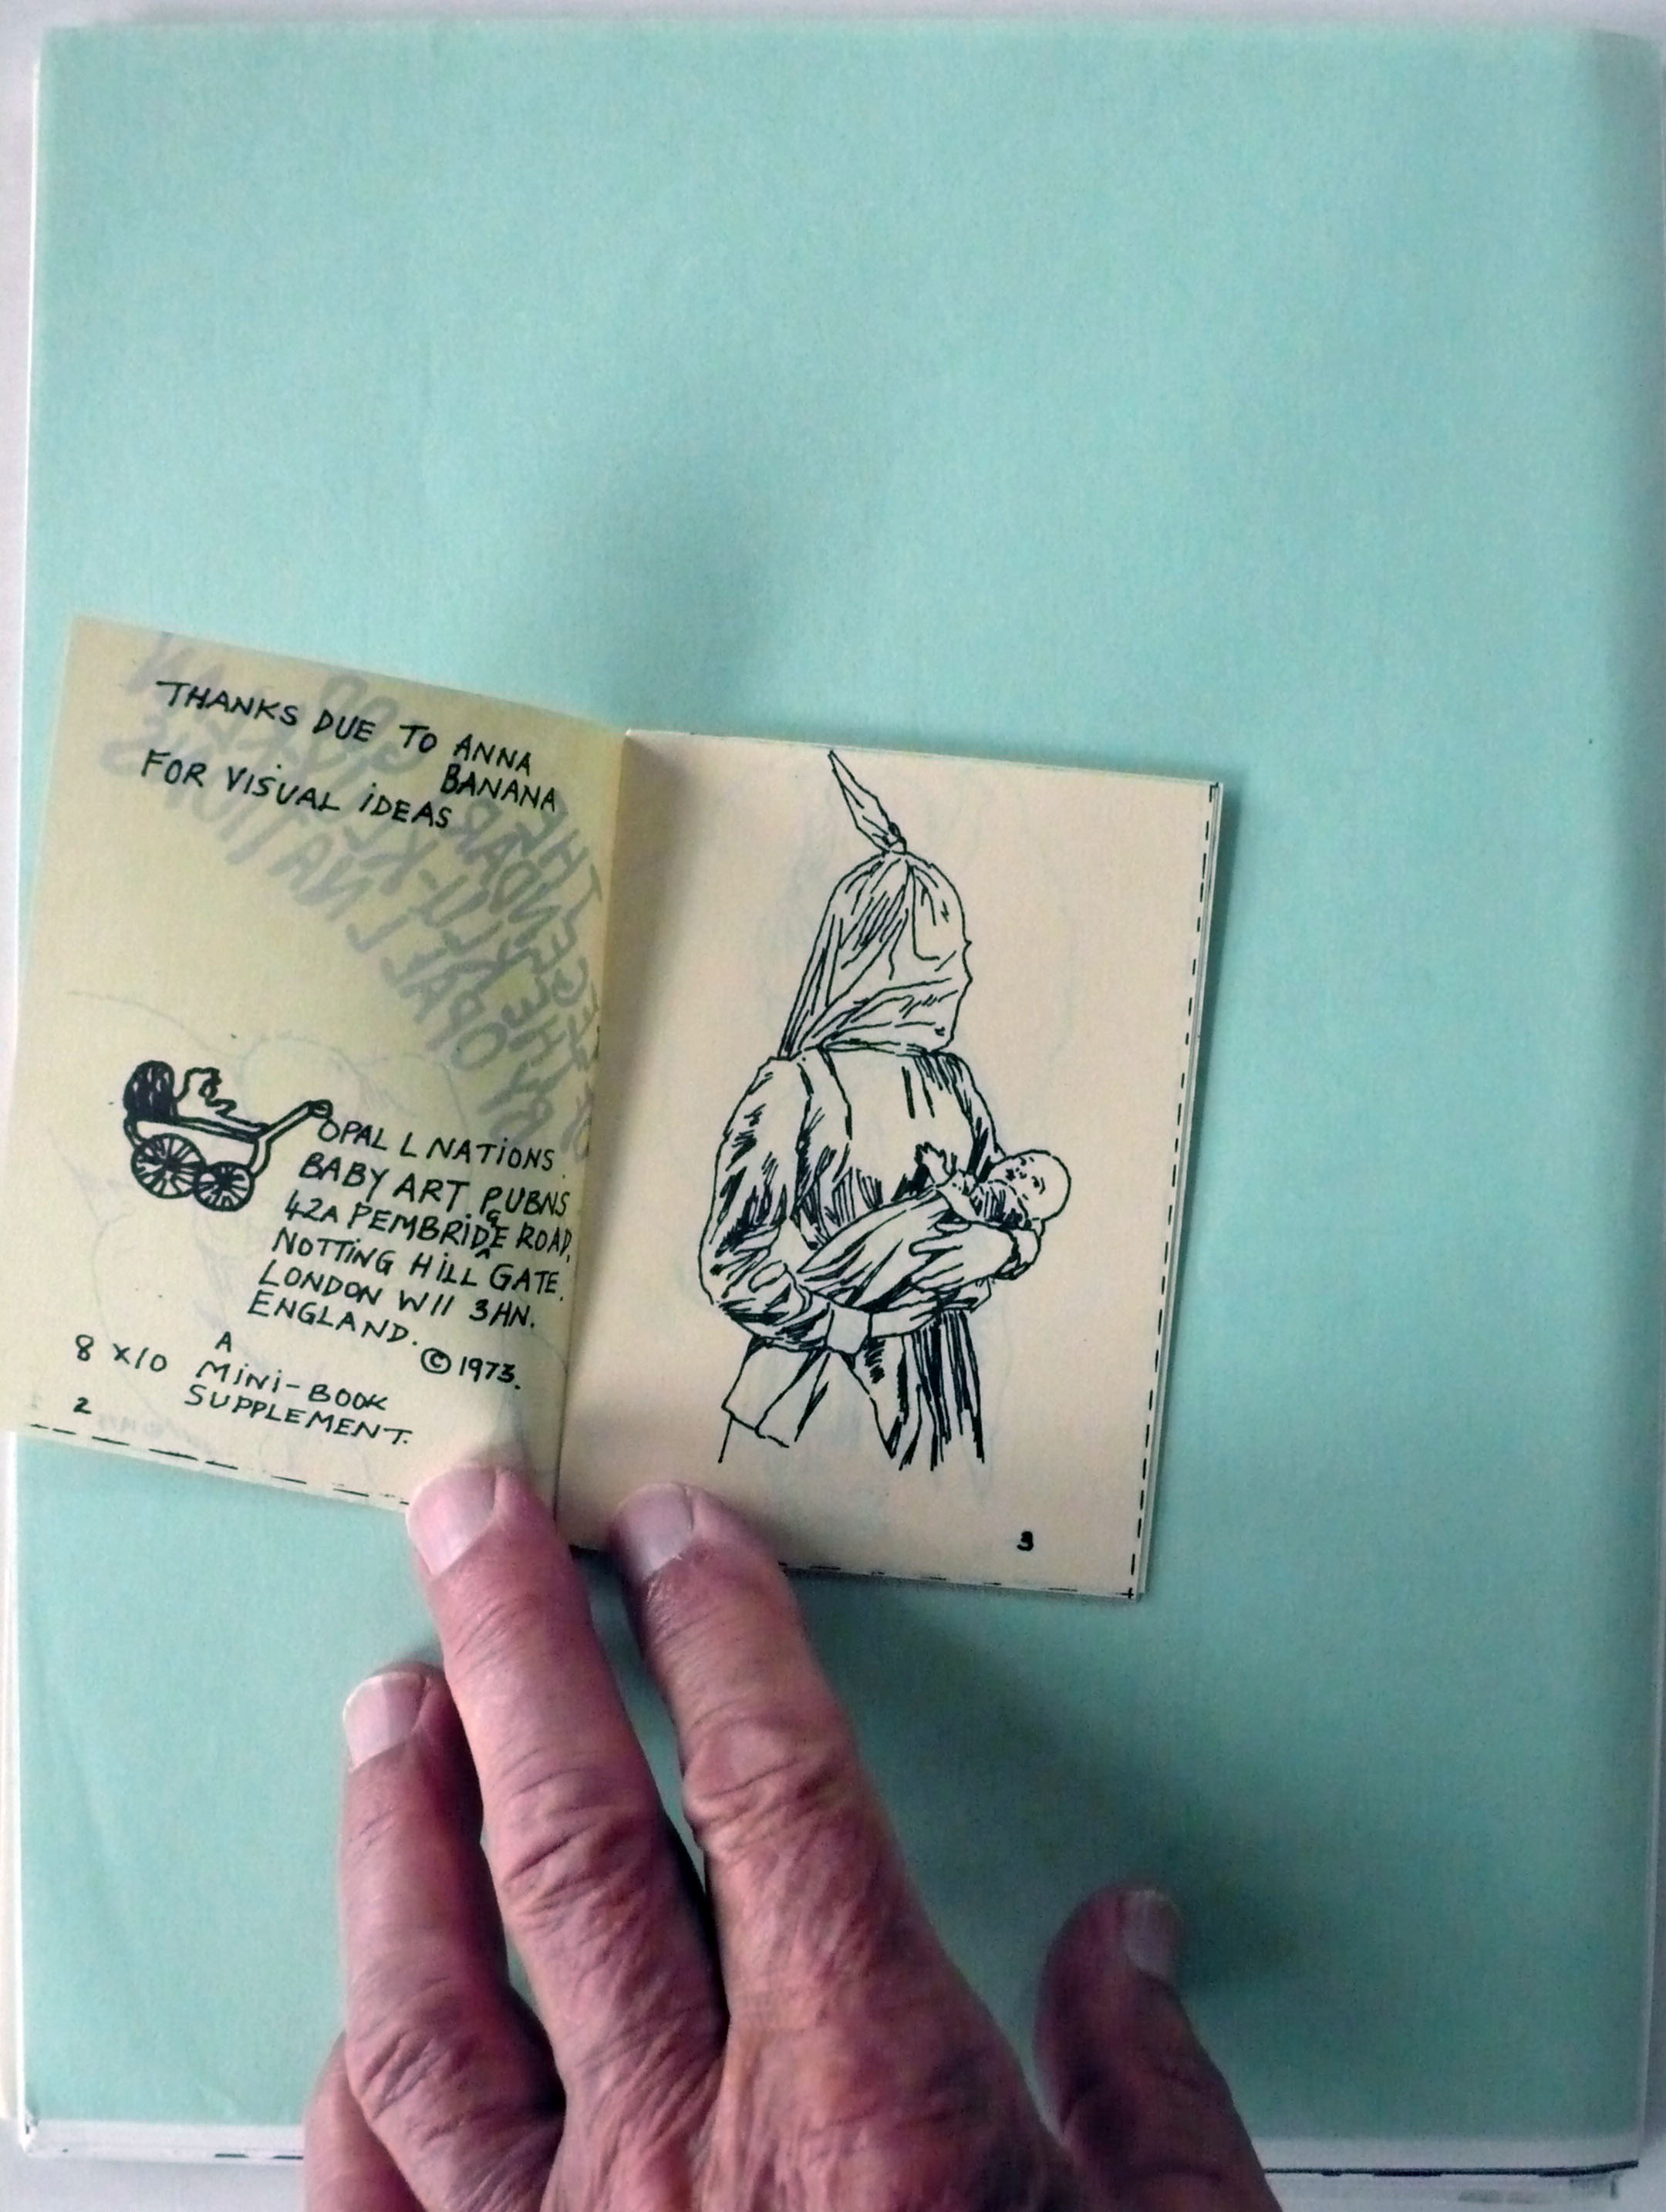 THANKS DUE TO ANNA
BANANA
FOR VISUAL IDEAS
OPAL L NATIONS.
BABY ART. PUBNS
42A PEMBRIDGE ROAD,
NOTTING HILL GATE.
LONDON W11 3HN.
ENGLAND.
© 1973.
8 X10 A
MINI-BOOK
SUPPLEMENT.
2
3